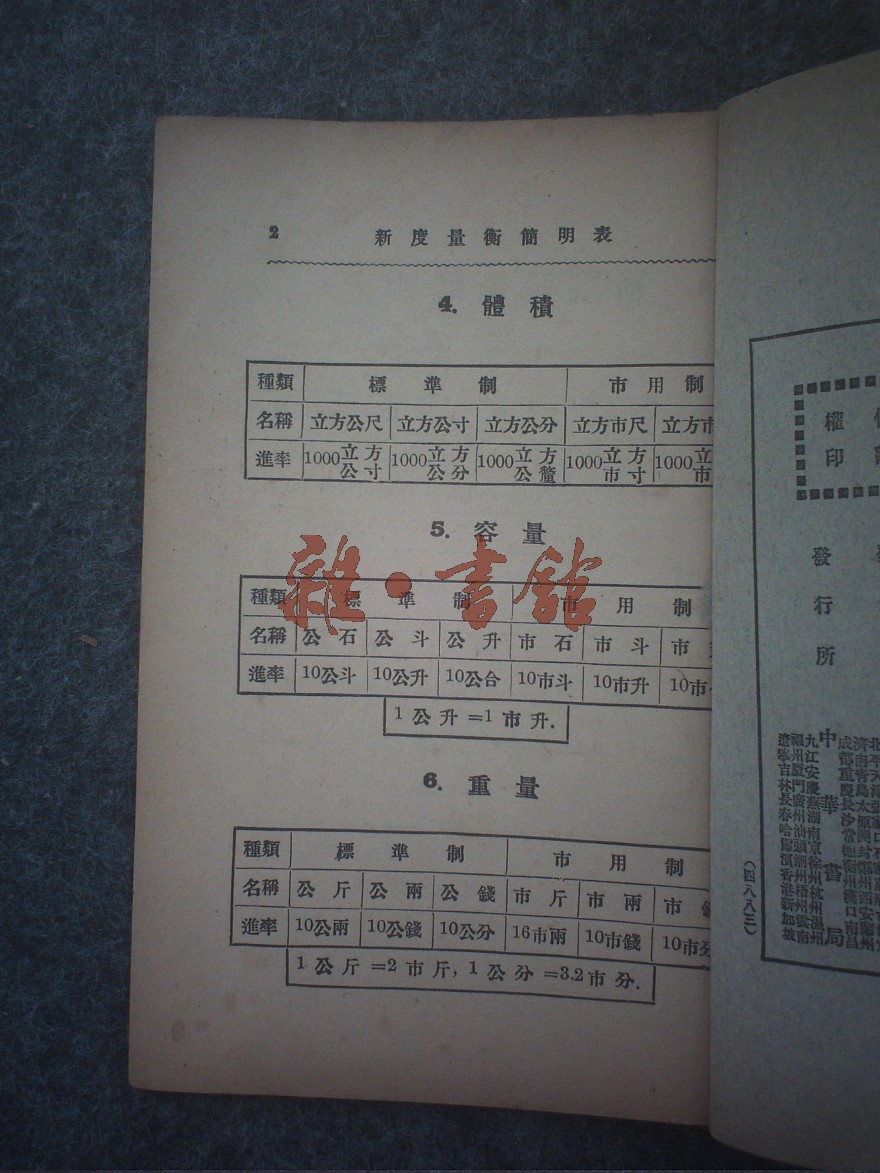 2 新度量衡簡明表
4. 體積
種類 標準制 市用制
名稱 立方公尺 立方公寸 立方公分 立方市尺 立方市
進率 1000立方公寸 1000立方公分 1000立方公釐 1000立方市寸 1000立方市
5. 容量
種類 標準制 市用制
名稱 公石 公斗 公升 市石 市斗 市
進率 10公斗 10公升 10公合 10市斗 10市升 10市
1公升=1市升.
6. 重量
種類 標準制 市用制
名稱 公斤 公兩 公錢 市斤 市兩 市
進率 10公兩 10公錢 10公分 16市兩 10市錢 10市分
1公斤=2市斤, 1公分=3.2市分.
雜·書館
權
印
發行所
中華書局
(四八八三)